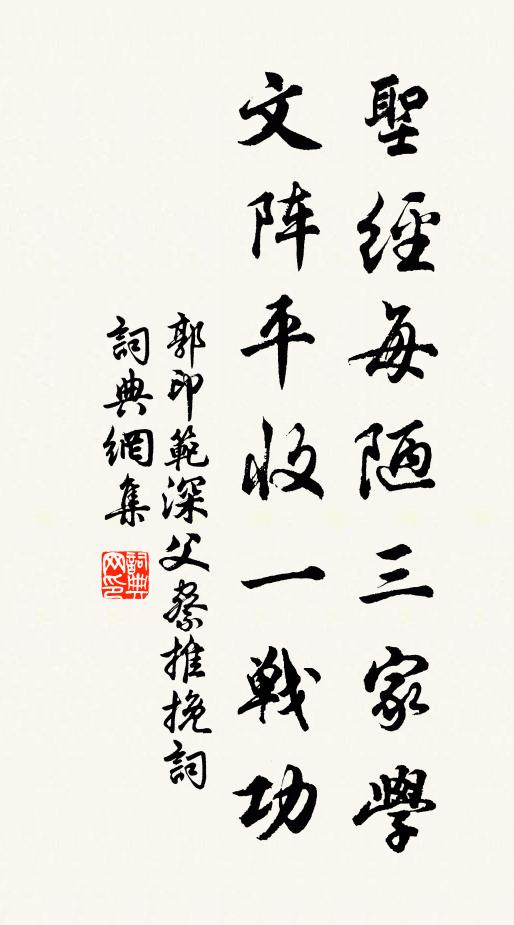 聖經每陋三家學
文阵平收一戰功
郭印範深父察推挽詞
詞典網集
詞典網印